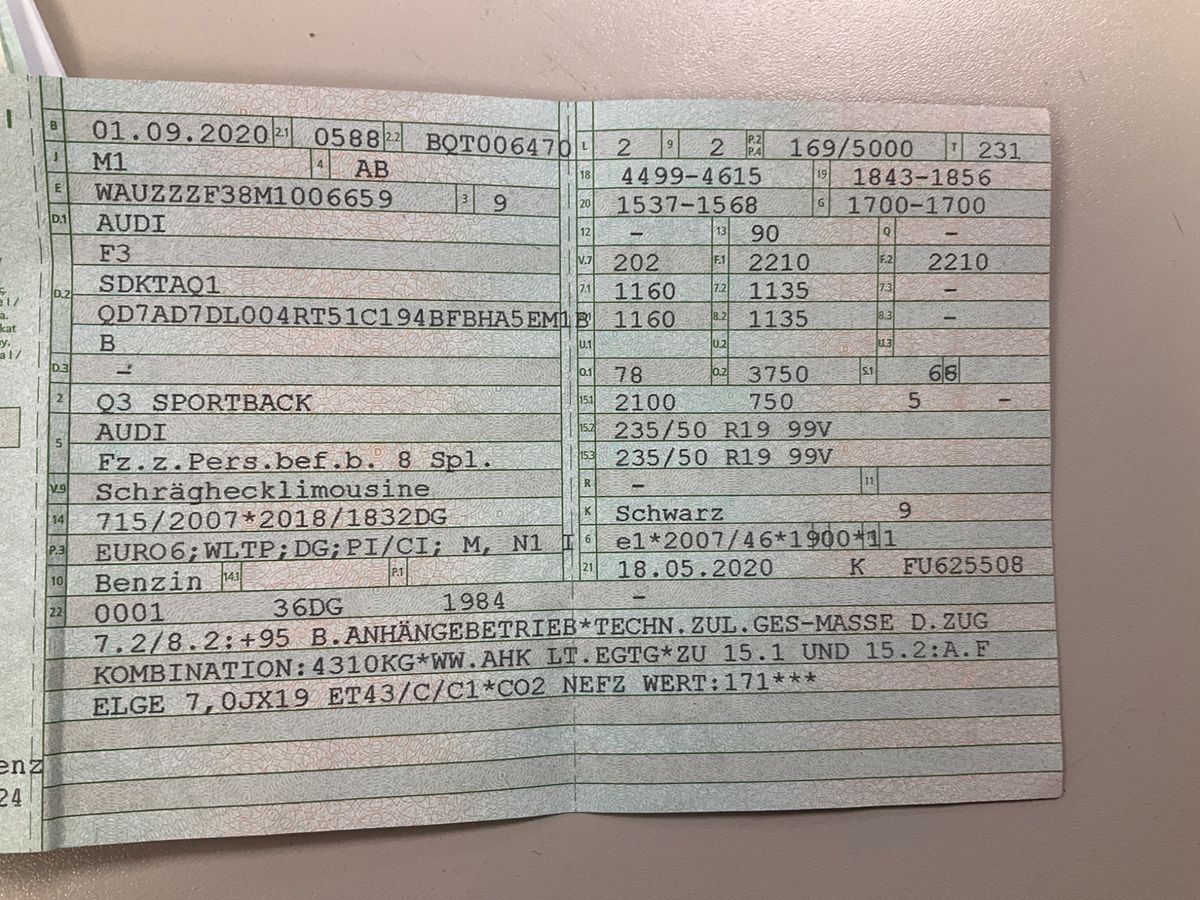 B 01.09.2020 2.1 0588 2.2 BQT006470
J M1 4 AB
E WAUZZZF38M1006659 3 9
D.1 AUDI
F3
D.2 SDKTAQ1
QD7AD7DL004RT51C194BFBHA5EM1B
B
D.3 –
2 Q3 SPORTBACK
5 AUDI
Fz.z.Pers.bef.b. 8 Spl.
V.9 Schräghecklimousine
14 715/2007*2018/1832DG
P.3 EURO6;WLTP;DG;PI/CI; M, N1 I
10 Benzin 14.1 P.1
22 0001 36DG 1984 –
L 2 9 2 P.2 P.4 169/5000 T 231
18 4499-4615 19 1843-1856
20 1537-1568 G 1700-1700
12 – 13 90 Q –
V.7 202 F.1 2210 F.2 2210
7.1 1160 7.2 1135 7.3 –
8.1 1160 8.2 1135 8.3 –
U.1 U.2 U.3
O.1 78 O.2 3750 S.1
15.1 2100 750 5 –
15.2 235/50 R19 99V
15.3 235/50 R19 99V
R – 11
K Schwarz 9
6 e1*2007/46*1900*11
21 18.05.2020 K FU625508
7.2/8.2:+95 B.ANHÄNGEBETRIEB*TECHN.ZUL.GES-MASSE D.ZUG
KOMBINATION:4310KG*WW.AHK LT.EGTG*ZU 15.1 UND 15.2:A.F
ELGE 7,0JX19 ET43/C/C1*CO2 NEFZ WERT:171***
enz
24